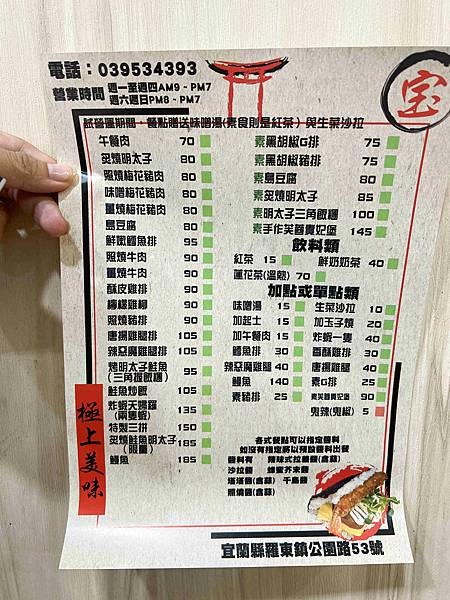 電話：039534393
營業時間 週一至週四AM9 - PM7
週六週日PM8 - PM7
宝
試營運期間，餐點贈送味噌湯(素食則是紅茶) 與生菜沙拉
午餐肉 70
炙燒明太子 80
照燒梅花豬肉 80
味噌梅花豬肉 80
薑燒梅花豬肉 80
島豆腐 80
鮮嫩鱈魚排 95
照燒牛肉 90
薑燒牛肉 90
酥皮雞排 90
檸檬雞柳 90
照燒豬排 90
唐揚雞腿排 105
辣惡魔雞腿排 105
烤明太子鮭魚 95
(三角握飯糰)
鮭魚炒飯 105
炸蝦天婦羅 135
(兩隻蝦)
特製三拼 150
炙燒鮭魚明太子 185
(限量)
鰻魚 185
素黑胡椒G排 75
素黑胡椒豬排 75
素島豆腐 80
素炙燒明太子 85
素明太子三角飯糰 100
素手作芙蓉貴妃堡 145
飲料類
紅茶 15
鮮奶奶茶 40
蓮花茶(溫熱) 70
加點或單點類
味噌湯 15
加起士 15
加午餐肉 15
鱈魚排 30
辣惡魔雞腿 40
鰻魚 140
素豬排 25
生菜沙拉 10
加玉子燒 20
炸蝦一隻 40
香酥雞排 30
唐揚雞腿 40
素G排 25
素芙蓉貴妃堡 90
鬼辣(鬼椒) 5
各式餐點可以指定醬料
如沒有指定將以預設醬料出餐
醬料有 辣味式拉醬醬(含蒜)
沙拉醬 蜂蜜芥末醬
塔塔醬(含蒜) 千島醬
照燒醬(含蒜)
極上美味
宜蘭縣羅東鎮公園路53號